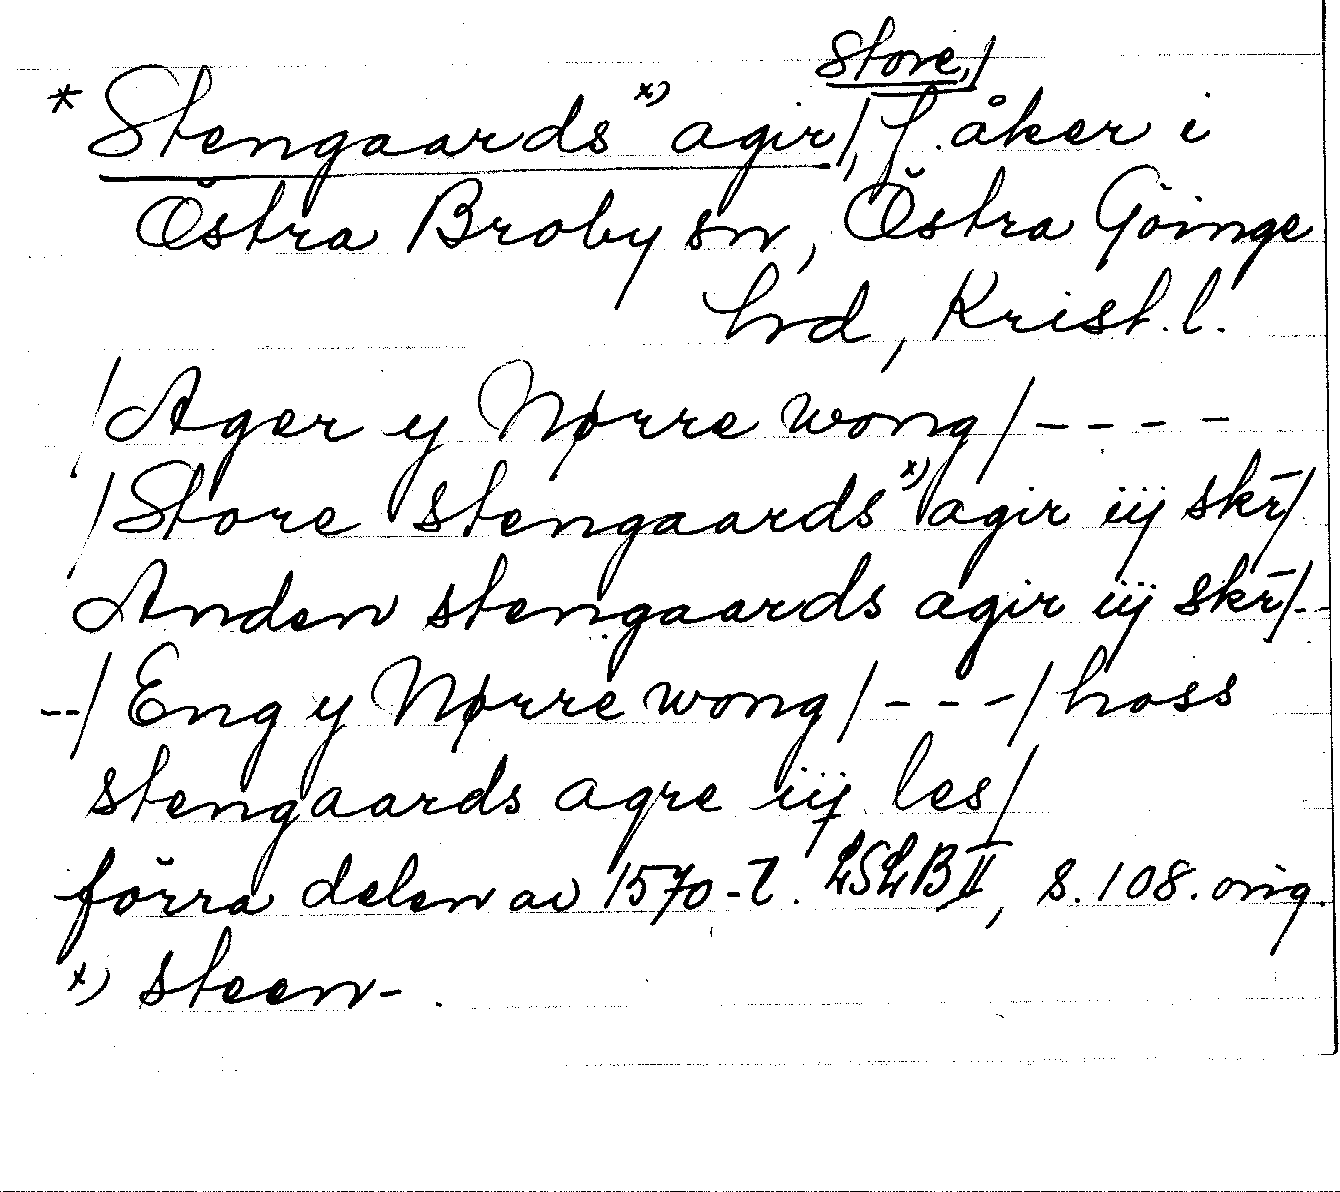 Store,/
* Stengaards x) agir/, f. åker i
Östra Broby sn, Östra Göinge
hrd, Krist. l.
/Ager y Nørre wong/----
/Store stengaards x) agir iij skr̄/
Anden stengaards agir iij skr̄/--
--/Eng y Nørre wong/---/hoss
stengaards agre iij les/
förra delen av 1570-t. LSLB II, s. 108. orig.
x) steen-.